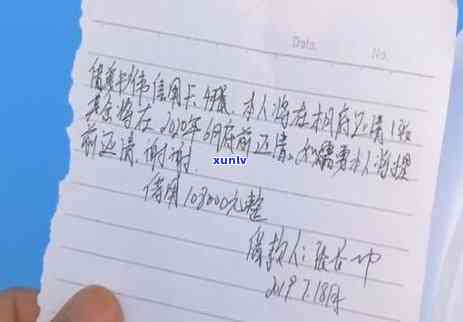 Data. No.
信用卡4张、本人将在相府还清1张
其余将在2020年6月府前还清。如需要本人将提
前还清、谢谢.
xunlv
借用103000元整
借款人:
2019 7.18